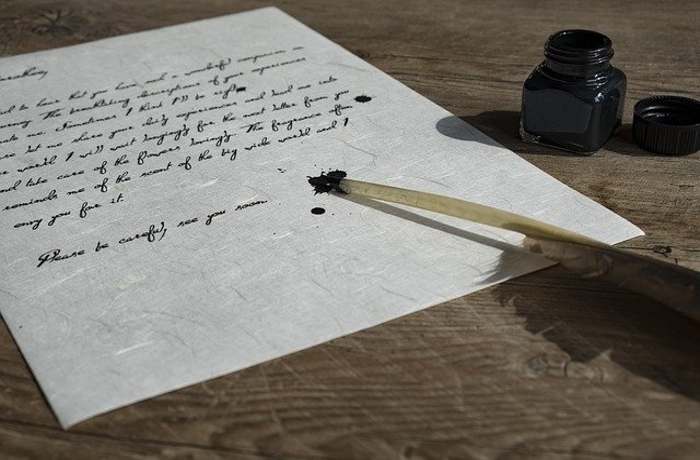 to hear that you have had a wonderful companion on
journey. The breathtaking descriptions of your experiences
me. Sometimes I think I'll be right
let me share your daily experiences and lead me into
world. I will wait longingly for the next letter from you
and take care of the flowers lovingly. The fragrance often
reminds me of the scent of the big wide world and I
envy you for it.
Please be careful, see you soon.